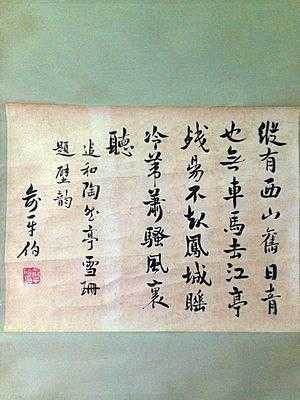 縱有西山舊日青
也無車馬去江亭
殘陽不起鳳城睡
冷葦蕭騷風裏
聽
追和陶然亭雪珊
題壁韵
俞平伯